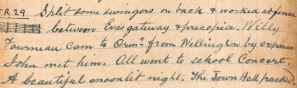 FR 29 Split some swingors on back & worked at fence
between Evas gateway & precopia. Willy
Tourneau Cam to Orm? from Wellington by express
John met him. All went to school Concert.
A beautiful moonlit night. The Town Hall packed